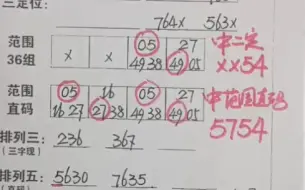 三定位: 764x 563x
范围 x x 05 27
36组 49 38 49 05
中二定
xx54
范围 05 16 05 27
直码 16 27 27 38 49 38 49 05
中范围直码
5754
排列三: 236 367
(三字现)
排列五: 5630 7635